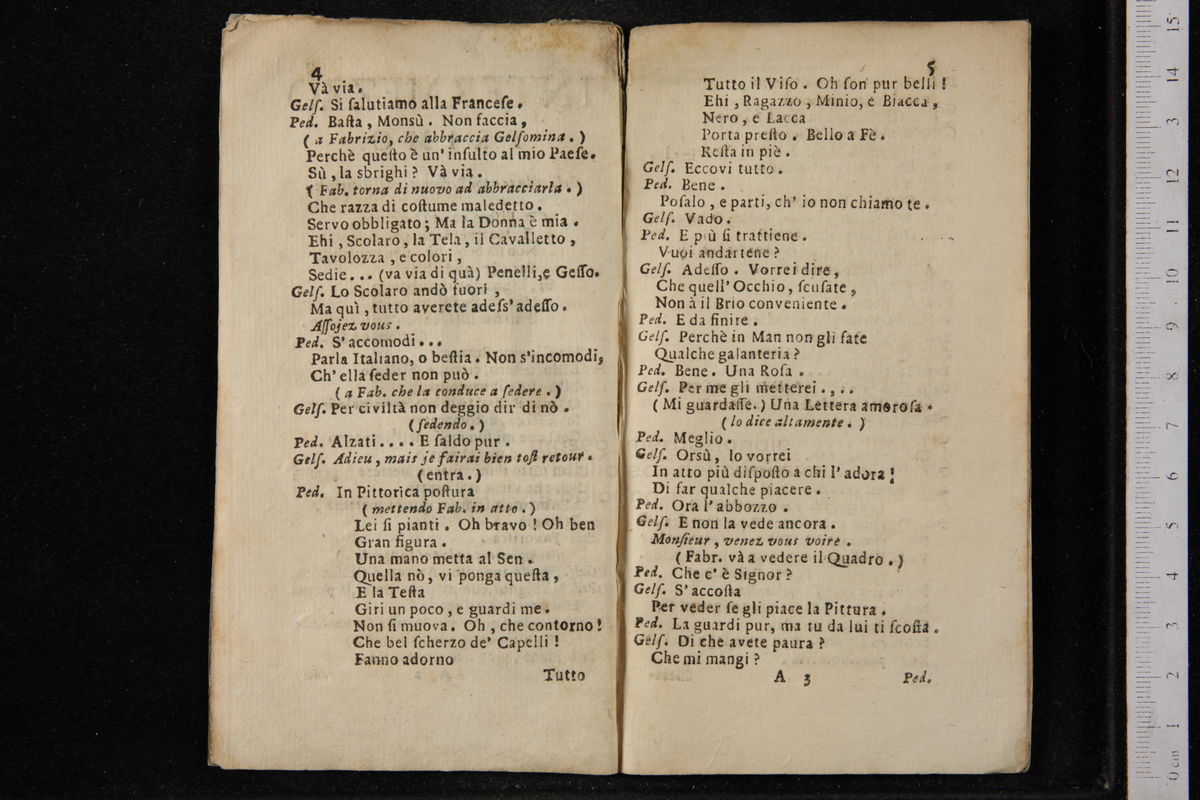 4
Và via.
Gelſ. Si ſalutiamo alla Franceſe.
Ped. Baſta, Monsù. Non faccia,
( a Fabrizio, che abbraccia Gelſomina. )
Perchè queſto è un' inſulto al mio Paeſe.
Sù, la sbrighi? Và via.
( Fab. torna di nuovo ad abbracciarla. )
Che razza di coſtume maledetto.
Servo obbligato; Ma la Donna è mia.
Ehi, Scolaro, la Tela, il Cavalletto,
Tavolozza, e colori,
Sedie... (va via di quà) Penelli, e Geſſo.
Gelſ. Lo Scolaro andò fuori,
Ma quì, tutto averete adeſs' adeſſo.
Aſſojez vous.
Ped. S' accomodi...
Parla Italiano, o beſtia. Non s'incomodi,
Ch' ella ſeder non può.
( a Fab. che la conduce a ſedere. )
Gelſ. Per civiltà non deggio dir di nò.
(ſedendo.)
Ped. Alzati.... E ſaldo pur.
Gelſ. Adieu, mais je fairai bien toſt retour.
(entra.)
Ped. In Pittorica poſtura
( mettendo Fab. in atto. )
Lei ſi pianti. Oh bravo! Oh ben
Gran figura.
Una mano metta al Sen.
Quella nò, vi ponga queſta,
E la Teſta
Giri un poco, e guardi me.
Non ſi muova. Oh, che contorno!
Che bel ſcherzo de' Capelli!
Fanno adorno
Tutto
5
Tutto il Viſo. Oh ſon pur belli!
Ehi, Ragazzo, Minio, e Biacca,
Nero, e Lacca
Porta preſto. Bello a Fè.
Reſta in piè.
Gelſ. Eccovi tutto.
Ped. Bene.
Poſalo, e parti, ch' io non chiamo te.
Gelſ. Vado.
Ped. E più ſi trattiene.
Vuoi andartene?
Gelſ. Adeſſo. Vorrei dire,
Che quell' Occhio, ſcuſate,
Non à il Brio conveniente.
Ped. E da finire.
Gelſ. Perchè in Man non gli fate
Qualche galanteria?
Ped. Bene. Una Roſa.
Gelſ. Per me gli metterei....
( Mi guardaſſe. ) Una Lettera amoroſa.
( lo dice altamente. )
Ped. Meglio.
Gelſ. Orsù, lo vorrei
In atto più diſpoſto a chi l' adora!
Di far qualche piacere.
Ped. Ora l' abbozzo.
Gelſ. E non la vede ancora.
Monſieur, venez vous voire.
( Fabr. và a vedere il Quadro. )
Ped. Che c' è Signor?
Gelſ. S' accoſta
Per veder ſe gli piace la Pittura.
Ped. La guardi pur, ma tu da lui ti ſcoſta.
Gelſ. Di che avete paura?
Che mi mangi?
A 3 Ped.
0 cm 1 2 3 4 5 6 7 8 9 10 11 12 13 14 15